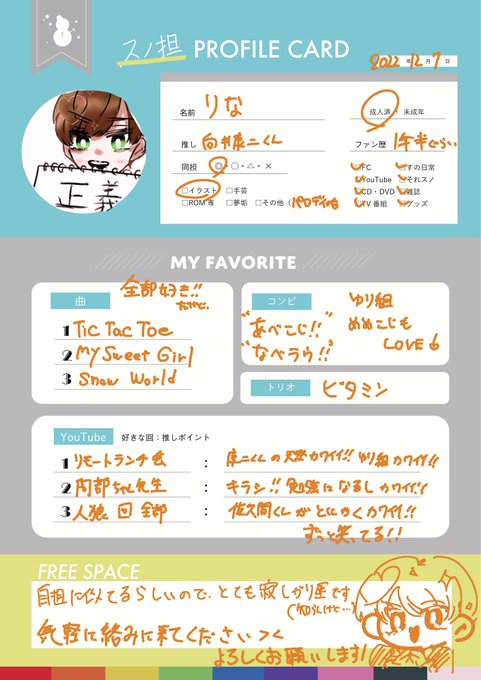 スノ担 PROFILE CARD
2022年12月7日
正義
名前 りな
成人済・未成年
推し 向井康二くん
ファン歴 1年半ぐらい
同担 ◎・○・△・×
□イラスト □手芸
□ROM専 □夢垢 □その他（パロディetc）
□FC □すの日常
□YouTube □それスノ
□CD・DVD □雑誌
□TV番組 □グッズ
MY FAVORITE
曲 全部好き!! だけど、
1 Tic Tac Toe
2 My Sweet Girl
3 Snow World
コンビ ゆり組
"あべこじ!!" めめこじも
"なべラウ!!" LOVE
トリオ ビタミン
YouTube 好きな回：推しポイント
1 リモートランチ会 : 康二くんの天然カワイイ!! ゆり組カワイイ!!
2 阿部ちゃん先生 : キラシ!! 勉強になるしカワイイ!!
3 人狼回全部 : 佐久間くんがとにかくカワイイ!!
ずっと笑ってる!!
FREE SPACE
自担に似てるらしいので、とても寂しがり屋です
(知らんけど…)
気軽に絡みに来てくださいっ
よろしくお願いします!